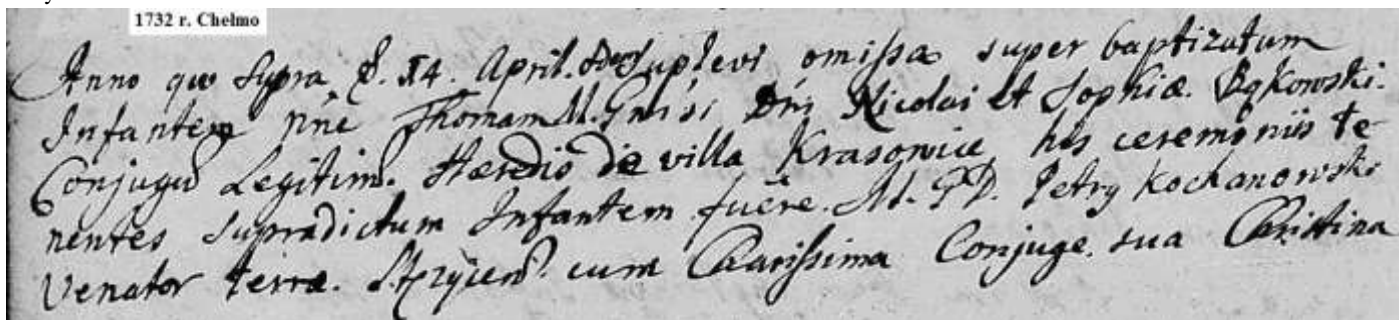 1732 r. Chełmo
Anno quo Supra d. 14. April. Suplevi omissa super baptizatum
Infantem nne Thomam M. Gnisi Dni Nicolai et Sophiæ Bąkowski.
Conjugū Legitim. Hæredis de villa Krasowice his ceremoniis te
nentes Supradictum Infantem fuere. M. G. D. Petrg Kochanowski
Venator terræ. cum Charissima Conjuge sua Christina